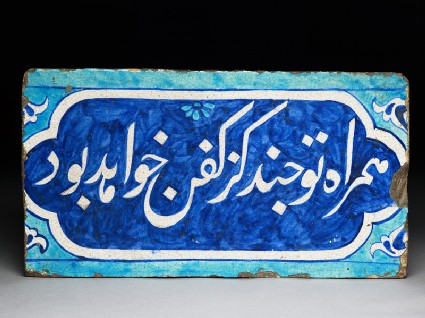 همراه تو چند گز کفن خواهد بود